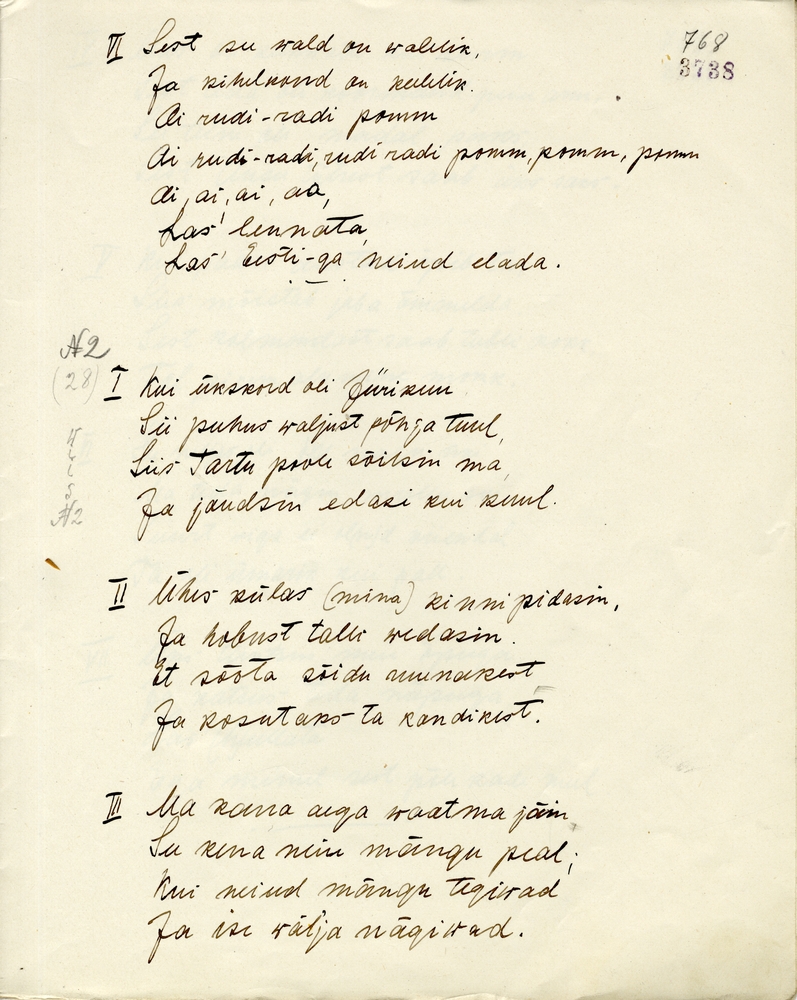 768
3738
VI Sest su wald on walelik,
Ja kihelkond on kelelik.
Ai rudi-radi pomm
Ai rudi-radi, rudi radi pomm, pomm, pomm
Ai, ai, ai, aa,
Las' lennata,
Las' Eesti-ga neiud elada.
№2
(28)
I Kui ükskord oli Jürikuu
Sii puhus waljust põhja tuul,
Siis Tartu poole sõitsin ma,
Ja jõudsin edasi kui kuul.
№2
II Ühes külas (mina) kinni pidasin,
Ja hobust talli wedasin.
Et sööta sõidu ruunakest
Ja kosutaks ta kondikest.
III Ma kaua aega waatma jäin
Su kena neiu mängu peal;
Kui neiud mängu tegiwad
Ja ise wälja nägiwad.